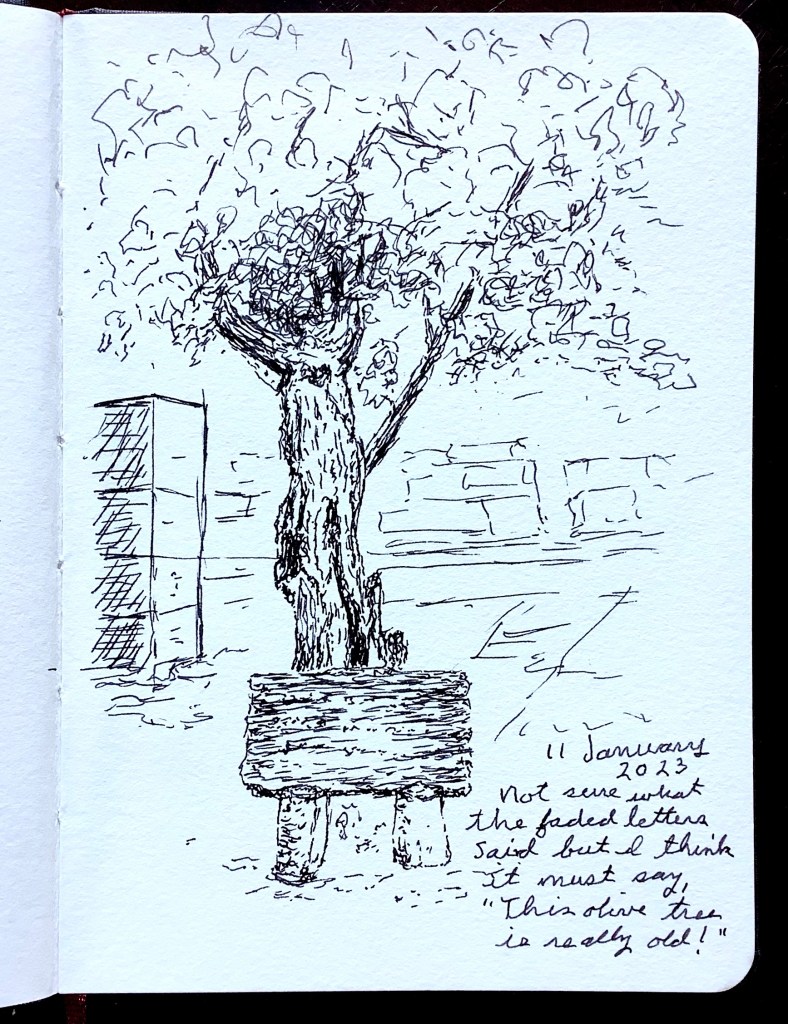 11 January
2023
Not sure what
the faded letters
said but I think
it must say,
"This olive tree
is really old!"